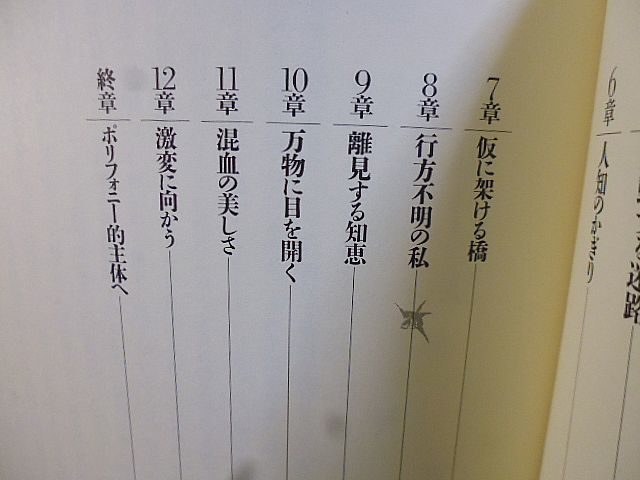 6章 人知のかぎり
7章 仮に架ける橋
8章 行方不明の私
9章 離見する知恵
10章 万物に目を開く
11章 混血の美しさ
12章 激変に向かう
終章 ポリフォニー的主体へ